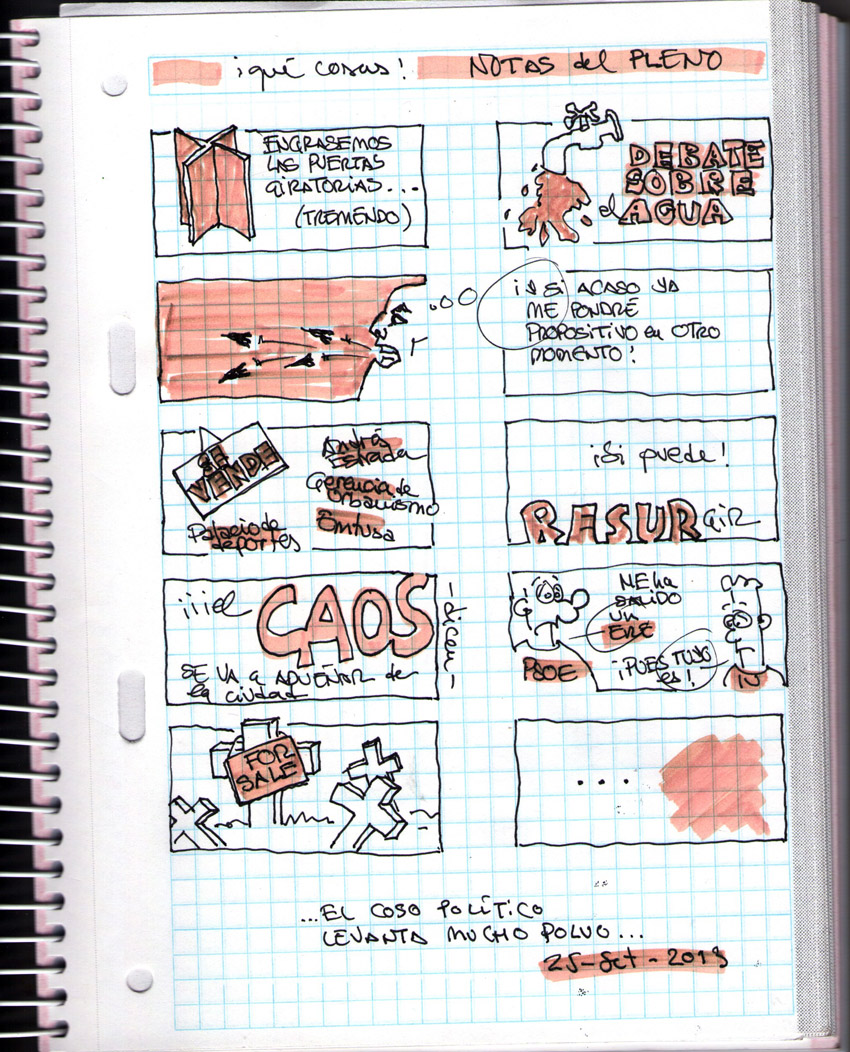 ¡qué cosas! NOTAS del PLENO
ENGRASEMOS
LAS PUERTAS
GIRATORIAS...
(TREMENDO)
DEBATE
SOBRE
el AGUA
¡Y si ACASO YA
ME PONDRÉ
PROPOSITIVO en OTRO
MOMENTO!
SE
VENDE
Palacio de
deportes
Estrada
Gerencia de
Urbanismo
Emtusa
¡Si puede!
RESURGIR
¡¡¡el CAOS
SE VA A ADUEÑAR de
la ciudad
-dicen-
ME ha
SALIDO
UN
ERE
PSOE
¡PUES TUYO
es!
IU
FOR
SALE
...
...EL COSO POLÍTICO
LEVANTA MUCHO POLVO...
25-Set-2013